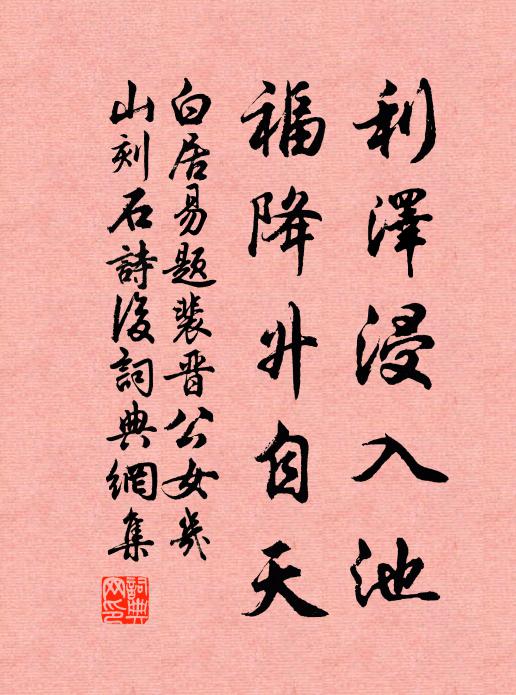 利澤浸入池
福降升自天
白居易題裴晉公女几
山刻石詩後詞典網集
詞典網印